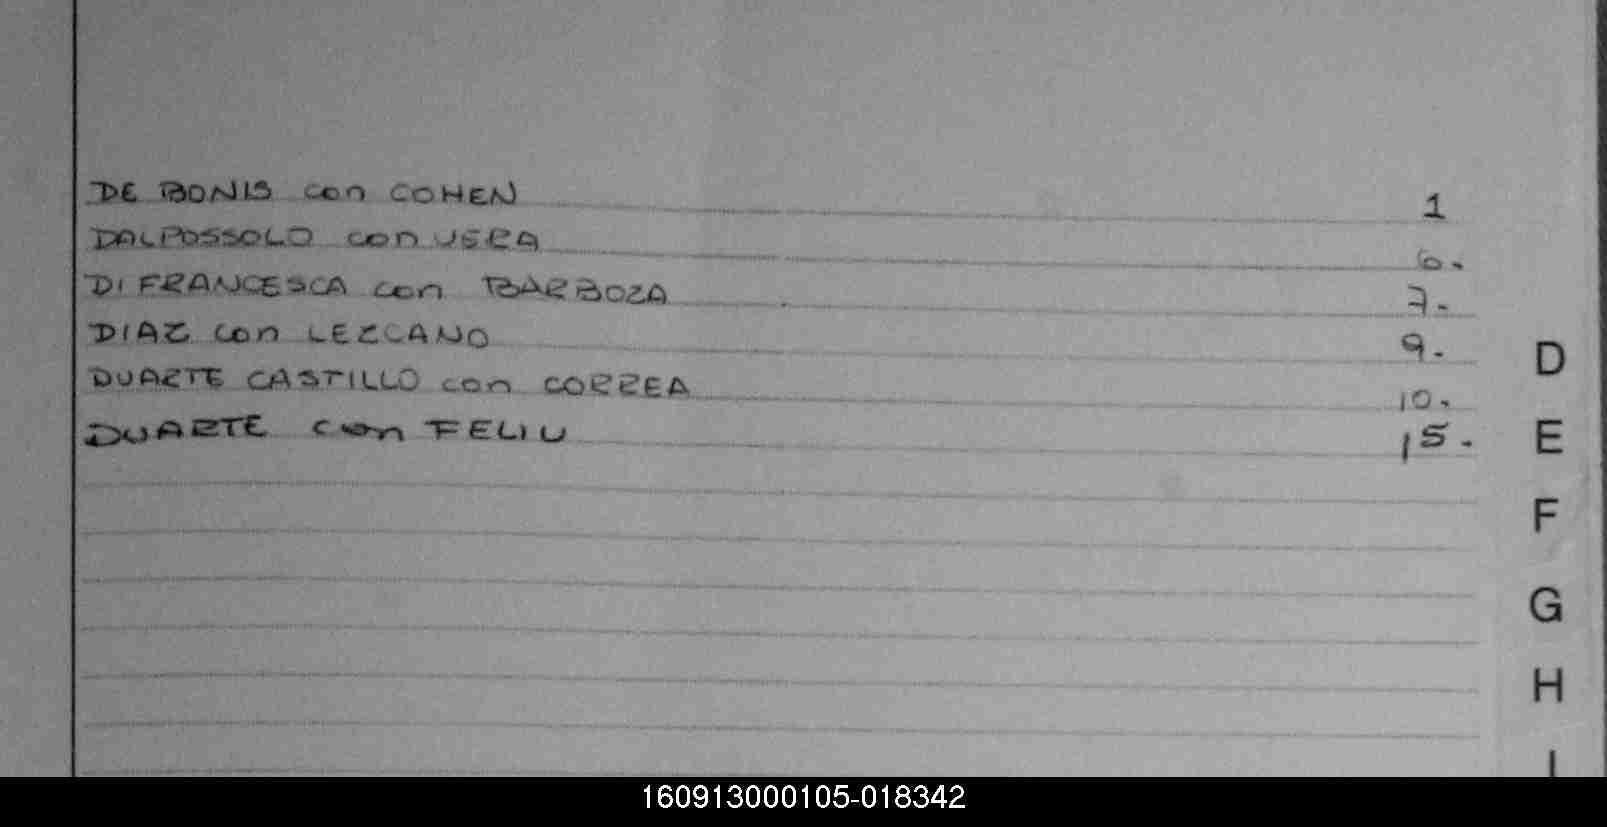 DE BONIS con COHEN 1
DALPOSSOLO con VERA 6.
DI FRANCESCA con BARBOZA 7.
DIAZ con LEZCANO 9.
DUARTE CASTILLO con CORREA 10.
DUARTE con FELIU 15.
D
E
F
G
H
I
160913000105-018342